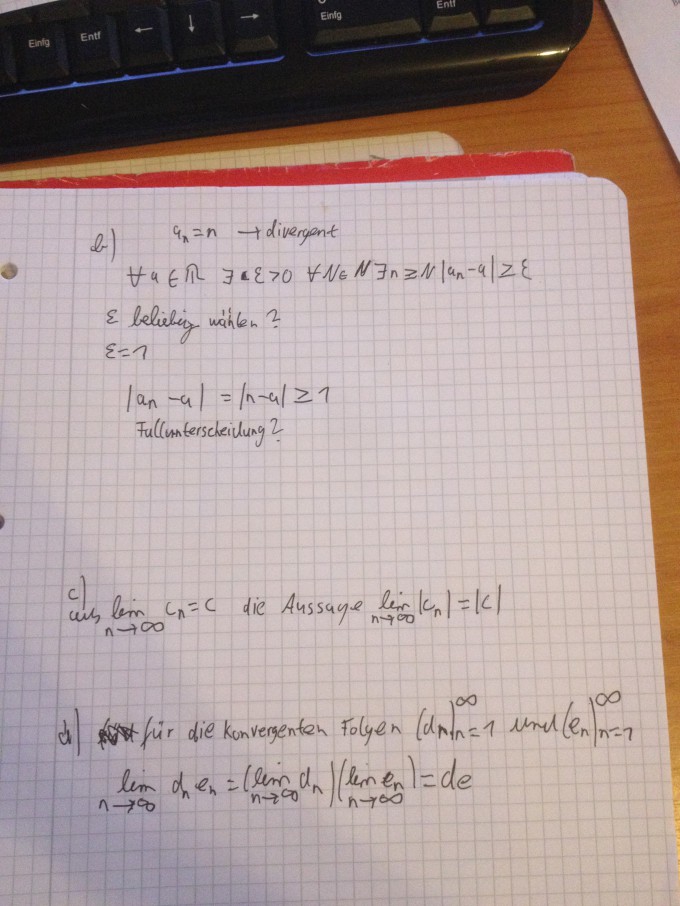 Einfg
Entf
←
↓
→
Einfg
Entf
b) aₙ = n → divergent
∀ a ∈ ℝ ∃ ε > 0 ∀ N ∈ ℕ ∃ n ≥ N |aₙ - a| ≥ ε
ε beliebig wählen?
ε = 1
|aₙ - a| = |n - a| ≥ 1
Fallunterscheidung?
c)
aus lim_{n→∞} cₙ = c die Aussage lim_{n→∞} |cₙ| = |c|
d) für die konvergenten Folgen (dₙ)_{n=1}^∞ und (eₙ)_{n=1}^∞
lim_{n→∞} dₙ eₙ = (lim_{n→∞} dₙ)(lim_{n→∞} eₙ) = de